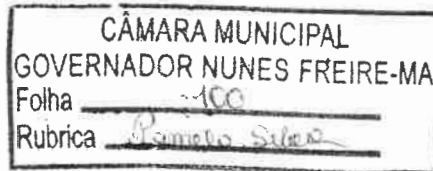 CÂMARA MUNICIPAL
GOVERNADOR NUNES FREIRE-MA
Folha 100
Rubrica Pamela Silva